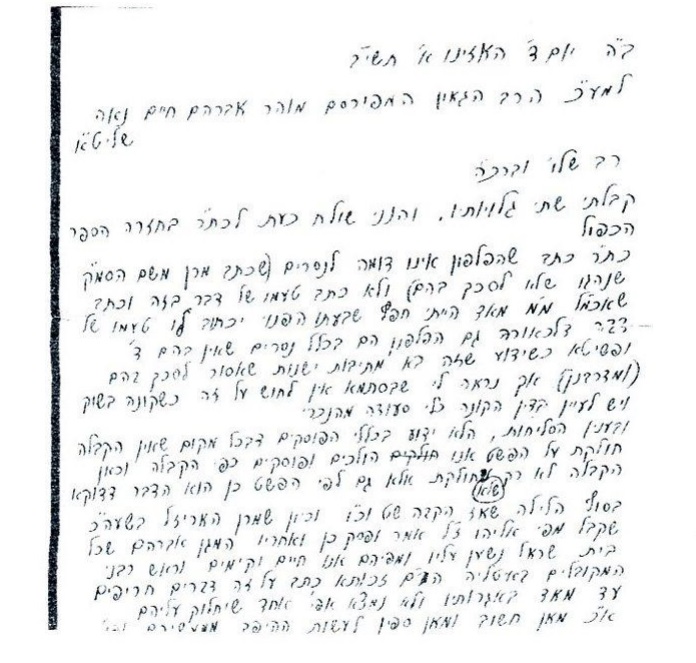 ב"ה יום ד' האזינו א' תשי"ב
למע"כ הרב הגאון המפורסם מוהר אברהם חיים נאה
שליט"א
רב שלו' וברכה
קבלתי שתי גלויותיו, והנני שולח כעת לכת"ר בחזרה הספר
הכפול
כת"ר כתב שהפלפון אינו דומה לנסרים (שכתב מרן משם הסמ"ק
שנהגו שלא לסכך בהם) ולא כתב טעמו של דבר בזה וכתב
מ"מ מאד הייתי חפץ יכתוב לי טעמו של
דבר דלכאורה גם הפלפון הם בכלל נסרים שאין בהם ד'
ופשיטא כשידוע שזה בא מתיבות ישנות שאסור לסכך בהם
(ומדרבנן) אך נראה לי שבסתמא אין לחוש על זה כשקונה בשוק
ויש לעיין בדין הקונה כלי סעודה מהנכרי
ובענין הסליחות, הלא ידוע בכללי הפוסקים דבכל מקום שאין הקבלה
חולקת על הפשט אנו הולכים ופוסקים כפי הקבלה וכאן
הקבלה לא רק שלא חולקת אלא גם לפי הפשט כן הוא הדבר דדוקא
בסוף הלילה שאז הקבה שט וכו' וכיון שמרן האריז"ל בשעה"כ
שקבל מפי אליהו ז"ל אמר ופסק כן ואחריו המגן אברהם שכל
בית ישראל נשען עליו ומפיהם אנו חיים וקיימים וראש רבני
המקובלים באיטליה הר"ם זכותא כתב על זה דברים חריפים
עד מאד באגרותיו ולא נמצא אפי' אחד שיחלוק עליהם
א"כ מאן חשוב ומאן ספין לעשות ההיפך